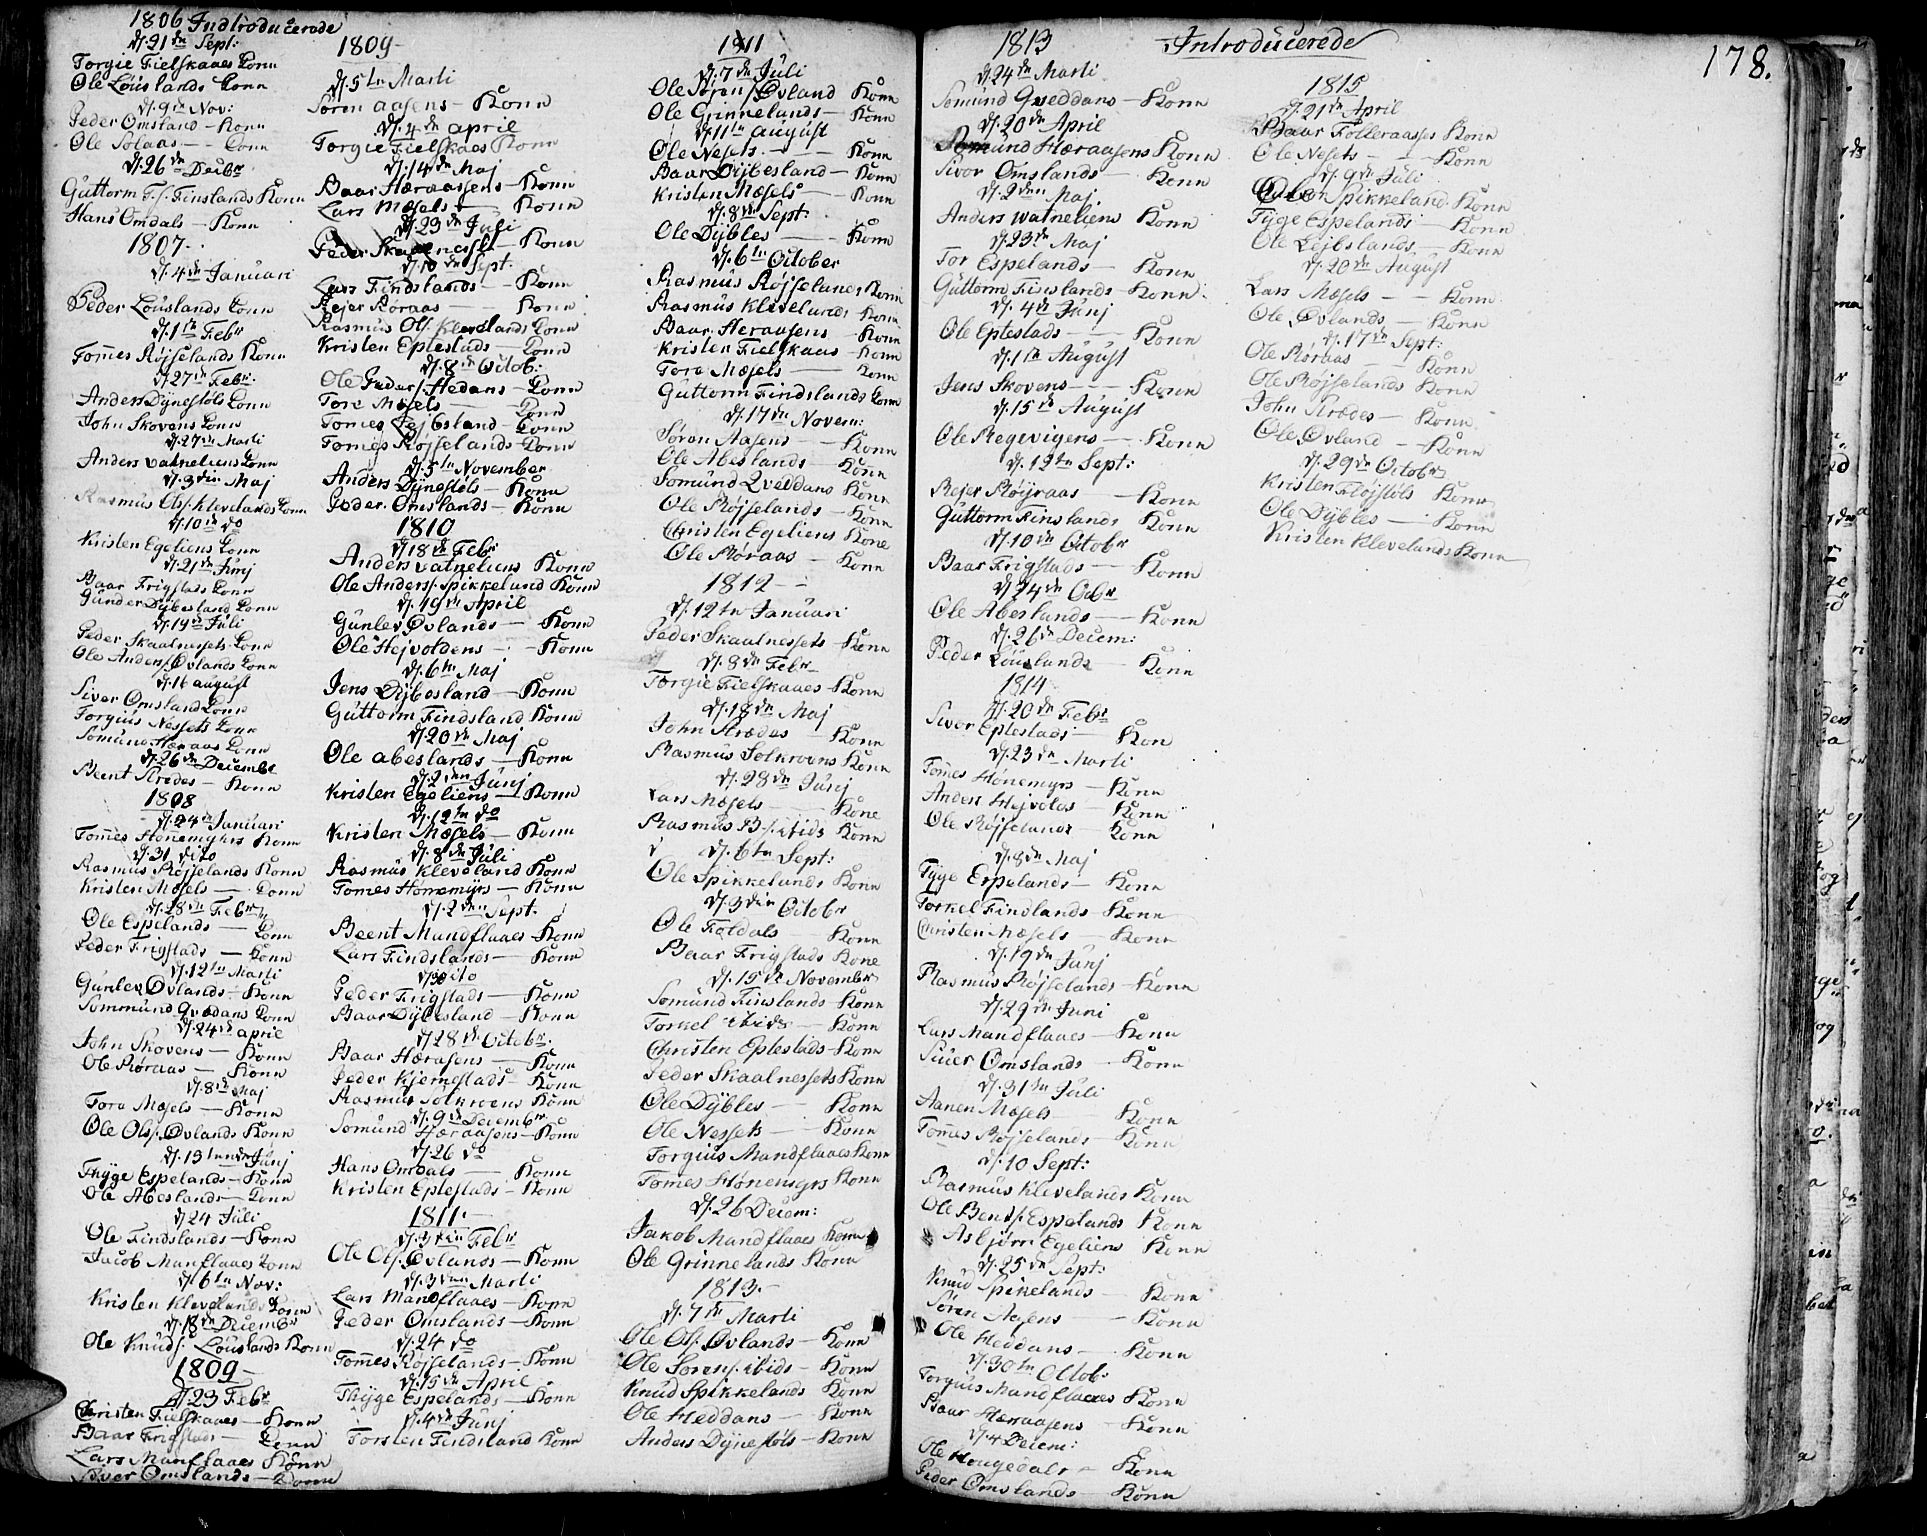 1806 Indtroducerede
d. 21de Sept:
Torgie Fielskaaes Konn
Ole Löuslands Konn
d. 9de Nov:
Peder Omsland - Konn
Ole Solaas - - Konn
d. 26de Decbr
Guttorm T/: Finslands Konn
Hans Omdals - Konn
1807
d. 4de Januari
Peder Louslands Konn
d. 1ste Febr
Tomes Røjselands Konn
d. 27de Febr:
Anders Dynestöls Konn
John Skovens Konn
d. 27de Marti
Anders Vatneliens Konn
d. 3die Maj
Rasmus Ols: Klevelands Konn
d. 10de do
Kristen Egeliens Konn
d. 21de Junj
Baar Frigstads Konn
Gunder Dybesland Konn
d. 19de Juli
Peder Skaalnessets Konn
Ole Anders: Øvlands Konn
d. 16 august
Siver Omsland Konn
Torgius Nessets Konn
Somund Hæraas Konn
d. 26de Decembr
Beent Krodes - Konn
1808
d. 24de Januari
Tomes Honnemyhrs Konn
d. 31 dito
Rasmus Røjselands Konn
Kristen Mosels - Konn
d. 28de Febr
Ole Espelands - Konn
Peder Frigstads - Konn
d. 12te Marti
Gunlev Øvlands - Konn
Sommund Qvedans Konn
d. 24de april
John Skovens - Konn
Ole Røraas - Konn
d. 8de Maj
Tora Mæsels - Konn
Ole Ols: Øvlands Konn
d. 13tende Junj
Thyge Espelands - Konn
Ole Abeslands - Konn
d. 24 Juli
Ole Findslands - Konn
Jacob Manflaaes Konn
d. 6te Nov:
Kristen Klevelands Konn
d. 18de Decembr
Ole Knuds: Louslands Konn
1809
d. 23 Febr
Christen Fielskaaes - Konn
Baar Frigstads - Konn
Lars Manflaaes Konn
Siver Omslands - Konn
1809
d. 5te Marti
Søren aasens - Konn
d. 4de april
Torgie Fielskaas Konn
d. 14de Maj
Baar Hæraassens - Konn
Lars Mæsels - Konn
d. 23de Juli
Peder Skaalnessets - Konn
d. 10de Sept.
Lars Findslands - Konn
Rejer Røraas - Konn
Rasmus Ols: Klevelands Konn
Kristen Eptestads - Konn
d. 8de Octob:
Ole Peders: Hedans - Konn
Tore Mæsels - Konn
Tomes Lejbsland - Konn
Tomes Røjselands - Konn
d. 5te November
Anders Dynestöls - Konn
Peder Omslands - Konn
1810
d. 18de Febr
Anders Vatneliens Konn
Ole Anders: Spikkeland Konn
d. 19de April
Gunlev Øvlands - Konn
Ole Hejvoldens - Konn
d. 6te Maj
Jens Dybesland - Konn
Guttorm Findsland Konn
d. 20de Maj
Ole abeslands - Konn
d. 2den Junj
Kristen Egeliens - Konn
d. 12te do
Kristen Mæsels - Konn
d. 8de Juli
Rasmus Kleveland Konn
Tomes Honnemyrs - Konn
d. 2den Sept.
Beent Mandflaaes Konn
Lars Findslands - Konn
d. 30 ito
Peder Frigstads - Konn
Baar Dybesland - Konn
d. 28de Octobr.
Baar Hærasens - Konn
Peder Kjernestads - Konn
Rasmus Solkroens Konn
d. 9de Decembr
Somund Hæraasens - Konn
d. 26 do
Hans Omdals - Konn
Kristen Eptestads - Konn
1811
d. 3die Febr
Ole Ols: Øvlands - Konn
d. 3den Marti
Lars Mandflaaes - Konn
Peder Omslands - Konn
d. 24 do
Tomes Røjselands - Konn
d. 15de April
Thyge Espelands - Konn
d. 4de Junj
Torsten Findsland Konn
1811
d. 7de Juli
Ole Sørens: Øvland Konn
Ole Grinnelands - Konn
d. 11te august
Ole Nesets - - Konn
Baar Dybesland - Konn
Kristen Mæsels - Konn
d. 8de Sept.
Ole Dybles - Konn
d. 6te October
Rasmus Røjselands Konn
Rasmus Klevelands Konn
Baar Heraasens - Konn
Kristen Fielskaas - Konn
Tora Mæsels - Konn
Guttorm Findslands Konn
d. 17de Novem:
Søren Aasens - Konn
Ole Abeslands - Konn
Somund Qveddans Konn
Ole Røjselands - Konn
Christen Egeliens Kone
Ole Røraas - Konn
1812
d. 12te Januari
Peder Skaalnessets - Konn
d. 8de Febr
Torgie Fielskaaes - Konn
d. 18de Maj
John Krædes - Konn
Rasmus Solkroens Konn
d. 28de Junj
Lars Mæsels - Kone
Rasmus B/: ibids Konn
d. 6te Sept:
Ole Spikkelands Konn
d. 3die Octobr
Ole Foldals - Konn
Baar Frigstads Kone
d. 15de Novembr
Somund Finslands - Konn
Torkel ibids - Konn
Christen Eptestads - Konn
Peder Skaalnessets Konn
Ole Dybles - Konn
Ole Nessets - Konn
Torgius Mandflaaes Konn
Tomes Hønemyrs Konn
d. 26 Decem:
Jakob Mandflaaes Konn
Ole Grinnelands Konn
1813
d. 7de Marti
Ole Ol: Øvlands - Konn
Ole Sørens: ibids - Konn
Knud Spikkelands Konn
Ole Heddans - Konn
Anders Dynestöls - Konn
1813 Introducerede 178.
d. 24de Marti
Somund Qveddans - Konn
d. 20de April
Somund Hæraasens Konn
Sivor Omslands - Konn
d. 2den Maj
Anders Watneliens Konn
d. 23de Maj
Tor Espelands - Konn
Guttorm Finslands - Konn
d. 4de Junj
Ole Eptestads - Konn
d. 1ste August
Jens Skovens - - Konn
d. 15de August
Ole Regevigens - Konn
d. 12te Sept:
Rejer Røjraas - Konn
Guttorm Finslands Konn
d. 10de Octobr
Baar Frigstads - Konn
d. 24de Ocbr
Ole Abeslands - Konn
d. 26de Decem:
Peder Louslands - Konn
1814
d. 20de Febr
Sivor Eptestads - Kon
d. 23de Marti
Tomes Hønemyrs - Konn
Anders Hejvolds - Konn
Ole Røjselands - Konn
d. 8de Maj
Tyge Espelands - Konn
Torkel Findlands - Konn
Christen Mæsels - Konn
d. 19de Junj
Rasmus Røjselands - Konn
d. 29de Juni
Lars Mandflaaes - Konn
Siver Omslands - Konn
d. 31de Juli
Aanen Mæsels - Konn
Tomes Røjselands - Konn
d. 10 Sept:
Rasmus Klevelands Konn
Ole Bends: Espelands Konn
Asbjørn Egeliens Konn
d. 25de Sept:
Knud Spikelands - Konn
Søren Aasens - Konn
Ole Heddans - Konn
d. 30te Octob:
Torgius Mandflaaes Konn
Baar Hæraasens - Konn
d. 4 Decem:
Ole Hougedals - Konn
Peder Omslands - Konn
1815
d. 21de April
Baar Folleraasses Konn
Ole Nesets - - Konn
d. 9de Juli
Spikkeland Konn
Tyge Espelands - Konn
Ole Lejbslands - Konn
d. 20de August
Lars Mæsels - - Konn
Ole Øvlands - Konn
d. 17de Sept:
Ole Røraas - Konn
Ole Røjselands Konn
John Krædes - Konn
Ole Øvland - Konn
d. 29de Octobr
Kristen Fløjstöls Konn
Ole Dybles - Konn
Kristen Klevelands Konn